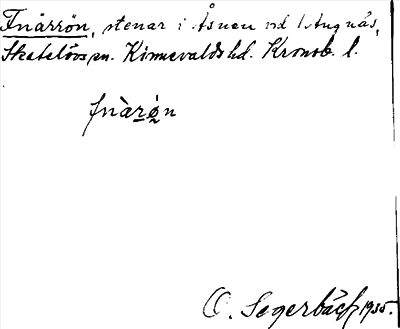 Fnärrön, stenar i Åsnen vid Ångnäs,
Skatelövs sn. Kinnevalds hd. Kronob. l.
fnàrǫ́n
O. Segerbäck 1935.